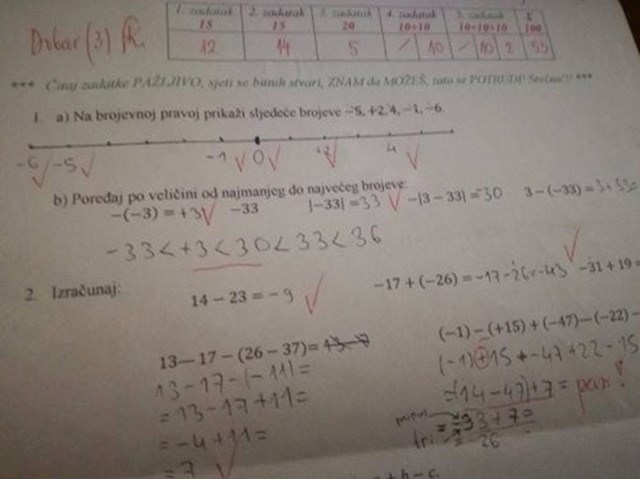 1. zadatak 2. zadatak 3. zadatak 4. zadatak 5. zadatak Σ
15 15 20 10+10 10+10+10 100
Dobar (3) 12 14 5 / 10 / 10 2 55
*** Čitaj zadatke PAŽLJIVO, sjeti se bitnih stvari, ZNAM da MOŽEŠ, zato se POTRUDI! Sretno!!! ***
1. a) Na brojevnoj pravoj prikaži sljedeće brojeve –5, +2, 4, –1, –6.
-6 -5 -1 0 +2 4
b) Poredaj po veličini od najmanjeg do najvećeg brojeve:
–(–3) = +3 –33 |–33| = 33 –|3 – 33| = 30 3 – (–33) = 3+33=
-33 < +3 < 30 < 33 < 36
2. Izračunaj:
14 – 23 = -9 –17 + (–26) = -17-26=-43 –31 + 19 =
13– 17 – (26 – 37)= 13-17
13-17-(-11)=
=13-17+11=
=-4+11=
=7
(–1) – (+15) + (–47) – (–22) –
(-1)+15+-47+22-15
=(14-47)+7= pazi!
-33+7=
26
+ b – c.